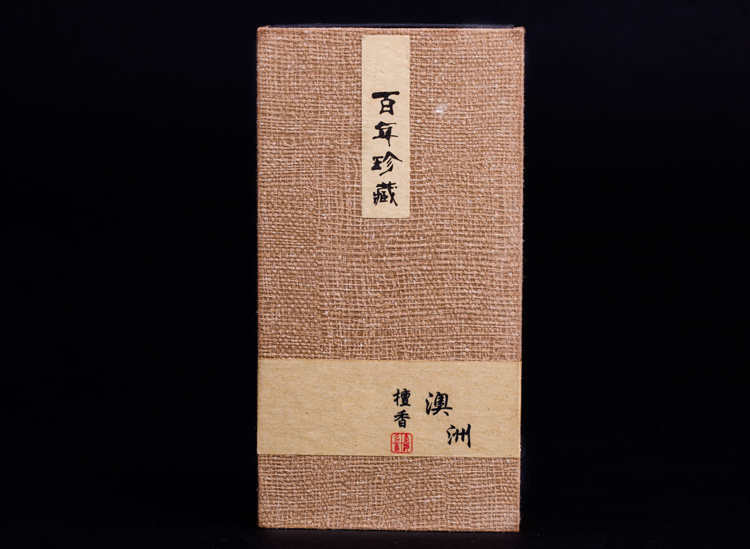 百年珍藏
澳洲
檀香